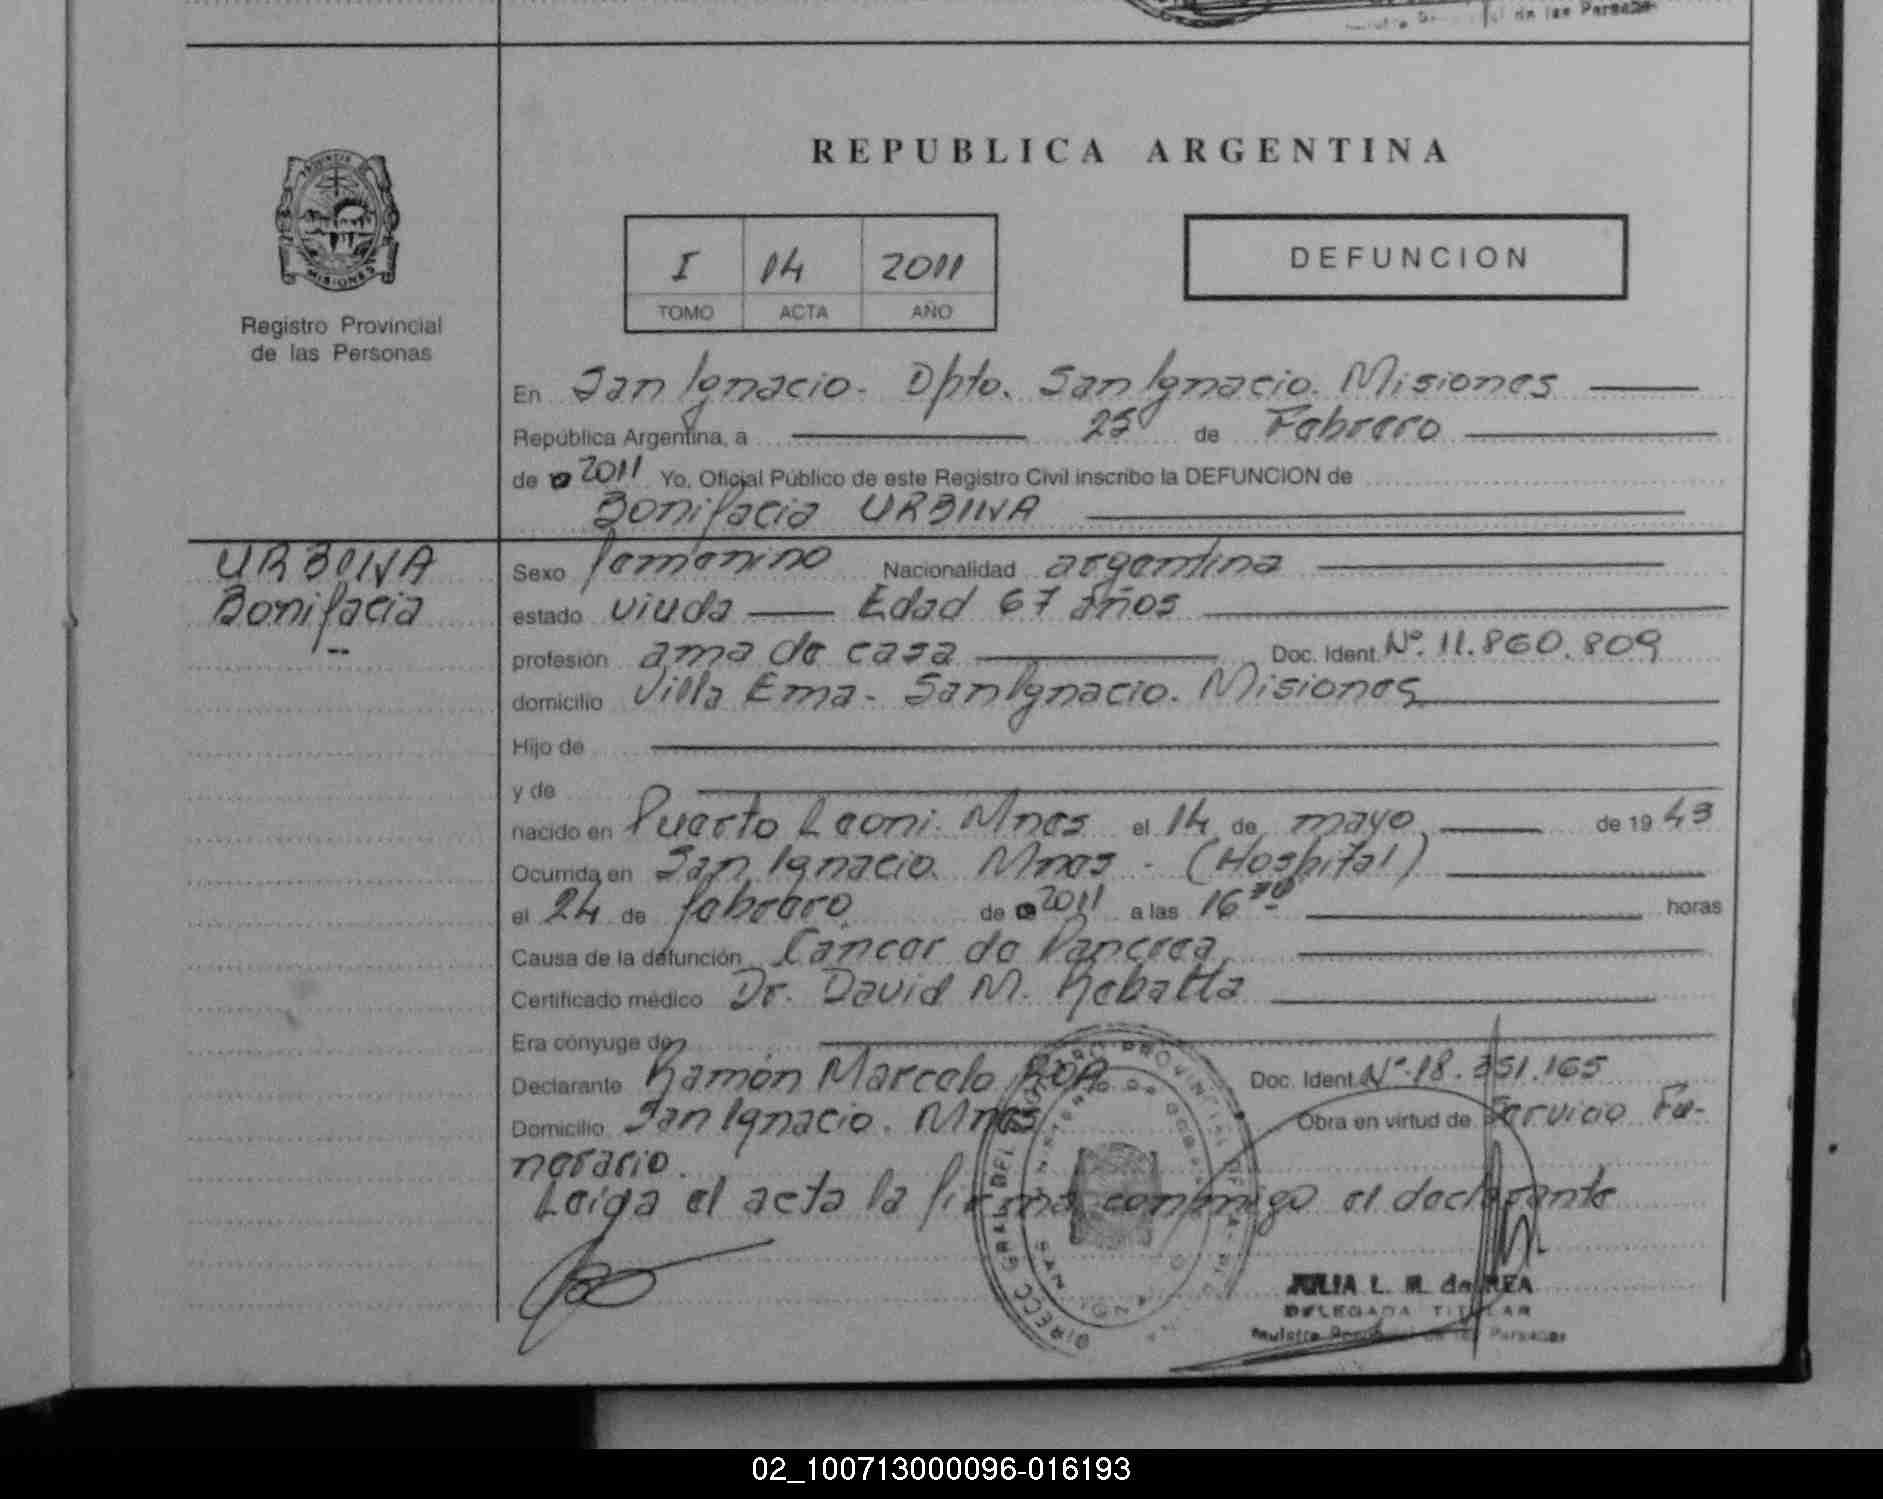 de las Personas
PROVINCIA
MISIONES
Registro Provincial
de las Personas
REPUBLICA ARGENTINA
I 14 2011
TOMO ACTA AÑO
DEFUNCION
En San Ignacio. Dpto. San Ignacio. Misiones
República Argentina, a 25 de Febrero
de 2011 Yo, Oficial Público de este Registro Civil inscribo la DEFUNCION de
Bonifacia URBINA
URBINA
Bonifacia
Sexo femenino Nacionalidad argentina
estado viuda Edad 67 años
profesión ama de casa Doc. Ident. Nº. 11.860.809
domicilio Villa Ema - San Ignacio. Misiones
Hijo de
y de
nacido en Puerto Leoni. Mnes el 14 de mayo de 1943
Ocurrida en San Ignacio. Mnes - (Hospital)
el 24 de febrero de 2011 a las 16 horas
Causa de la defunción Cáncer de Páncrea
Certificado médico Dr. David M. Rebatta
Era cónyuge de
Declarante Ramón Marcelo ROA Doc. Ident. Nº. 18.351.165
Domicilio San Ignacio. Mnes Obra en virtud de Servicio Fu-
nerario.
Leída el acta la firma conmigo el declarante
DIRECC GRAL DEL REGISTRO PROVINCIAL DE LAS
SAN IGNACIO
JULIA L. R. de REA
DELEGADA TITULAR
Registro Provincial de las Personas
02_100713000096-016193